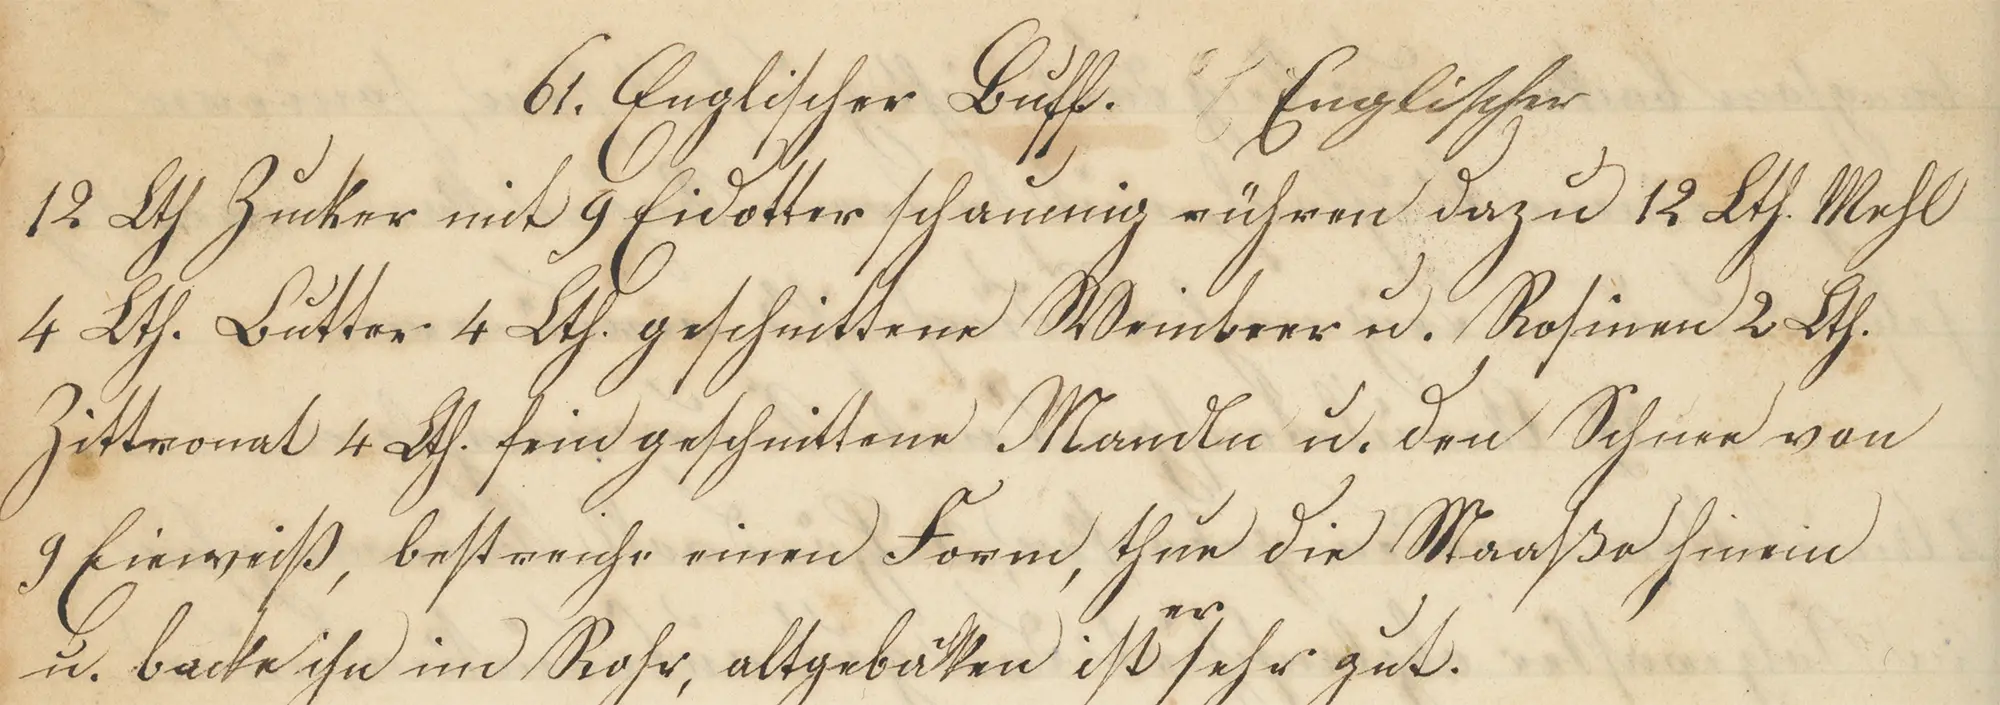 61. Englischer Buff. Englischer
12 Lth Zucker mit 9 Eidotter schaumig rühren dazu 12 Lth. Mehl
4 Lth. Butter 4 Lth. geschnittene Weinbeer u. Rosinen 2 Lth.
Zittronat 4 Lth. fein geschnittene Mandln u. den Schnee von
9 Eieweiß, bestreiche einen Form, thue die Maaße hinein
u. backe ihn im Rohr, altgebäken ist er sehr gut.